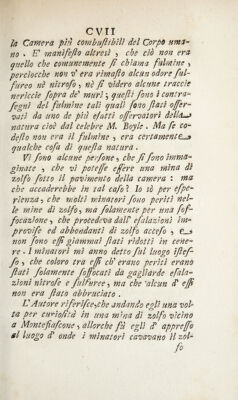 CVII
la Camera più combustibili del Corpo uma-
no. E' manifesto altresì, che ciò non era
quello che comunemente si chiama fulmine,
perciocchè non v' era rimasto alcun odore sul-
fureo nè nitroso, nè si videro alcune traccie
nericcie sopra de' muri; questi sono i contra-
segni del fulmine tali quali sono stati osser-
vati da uno de più esatti osservatori della
natura cioè dal celebre M. Boyle. Ma se co-
desto non era il fulmine, era certamente
qualche cosa di questa natura.
Vi sono alcune persone, che si sono imma-
ginate, che vi potesse essere una mina di
zolfo sotto il pavimento della camera: ma
che accaderebbe in tal caso? Io sò per espe-
rienza, che molti minatori sono periti nel-
le mine di zolfo, ma solamente per una sof-
focazione, che procedeva dall' esalazioni im-
provise ed abbondanti di zolfo acceso, e
non sono essi giammai stati ridotti in cene-
re. I minatori mi anno detto sul luogo istes-
so, che coloro tra essi ch' erano periti erano
stati solamente soffocati da gagliarde esala-
zioni nitrose e sulfuree, ma che alcun d' essi
non era stato abbruciato.
L' Autore riferisce, che andando egli una vol-
ta per curiosità in una mina di zolfo vicino
a Montefiascone, allorche fù egli d' appresso
al luogo d' onde i minatori cavavano il zol-
fo